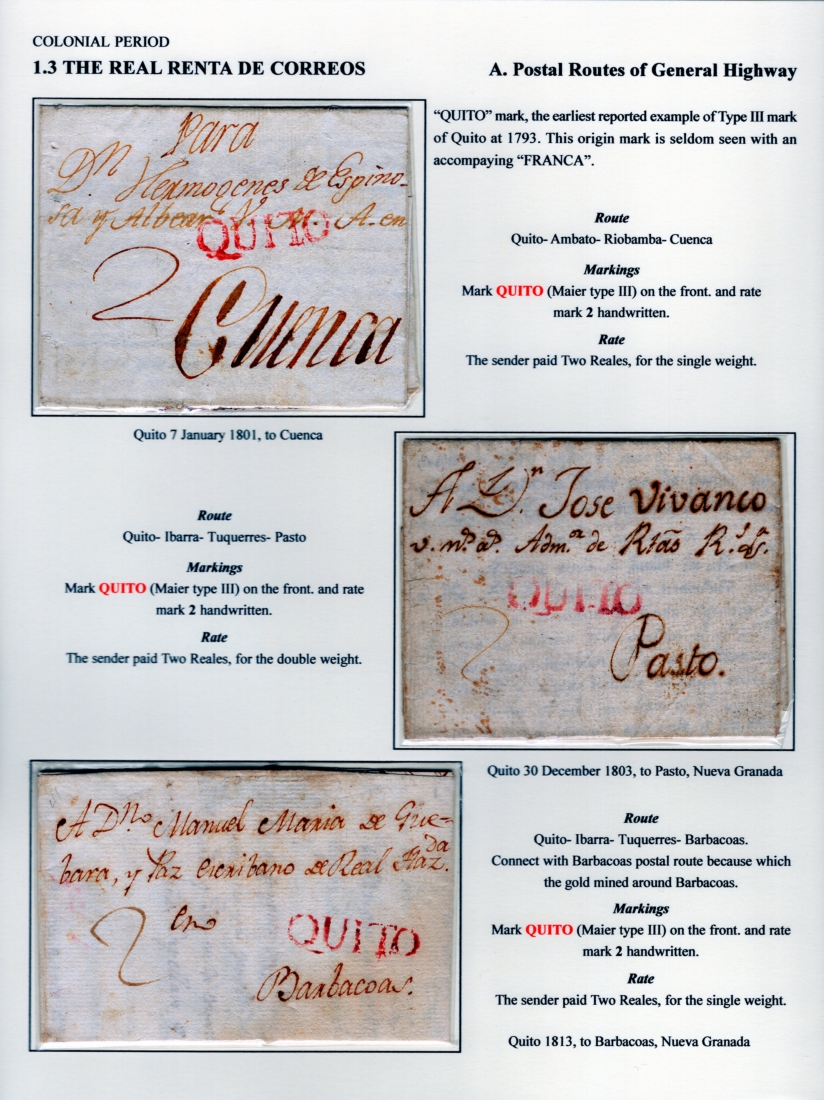 COLONIAL PERIOD
1.3 THE REAL RENTA DE CORREOS
A. Postal Routes of General Highway
Para
Dn
Hermogenes de Espino-
sa y Albear V. M. A. en
QUITO
2
Cuenca
“QUITO” mark, the earliest reported example of Type III mark
of Quito at 1793. This origin mark is seldom seen with an
accompaying “FRANCA”.
Route
Quito- Ambato- Riobamba- Cuenca
Markings
Mark QUITO (Maier type III) on the front. and rate
mark 2 handwritten.
Rate
The sender paid Two Reales, for the single weight.
Quito 7 January 1801, to Cuenca
Route
Quito- Ibarra- Tuquerres- Pasto
Markings
Mark QUITO (Maier type III) on the front. and rate
mark 2 handwritten.
Rate
The sender paid Two Reales, for the double weight.
A Dn. Jose Vivanco
Adm.or de Rtas
QUITO
2
Pasto.
Quito 30 December 1803, to Pasto, Nueva Granada
A Dno Manuel Maria de Gue-
bara, y Paz escribano de Real Hazda.
2 en
QUITO
Barbacoas.
Route
Quito- Ibarra- Tuquerres- Barbacoas.
Connect with Barbacoas postal route because which
the gold mined around Barbacoas.
Markings
Mark QUITO (Maier type III) on the front. and rate
mark 2 handwritten.
Rate
The sender paid Two Reales, for the single weight.
Quito 1813, to Barbacoas, Nueva Granada